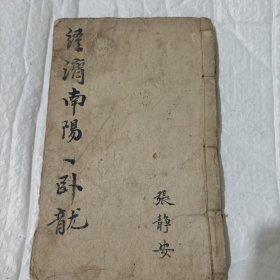 經濟南陽一卧龍
張静安